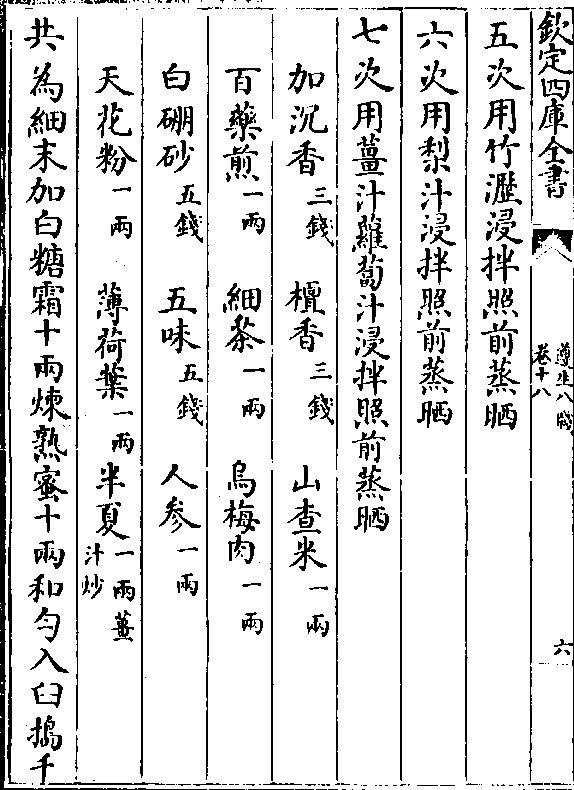 欽定四庫全書
遵生八牋
卷十八
六
五次用竹瀝浸拌照前蒸晒
六次用梨汁浸拌照前蒸晒
七次用薑汁蘿蔔汁浸拌照前蒸晒
加沉香三錢 檀香三錢 山查米一兩
百藥煎一兩 細茶一兩 烏梅肉一兩
白硼砂五錢 五味五錢 人參一兩
天花粉一兩 薄荷葉一兩 半夏一兩薑汁炒
共為細末加白糖霜十兩煉熟蜜十兩和勻入臼搗千